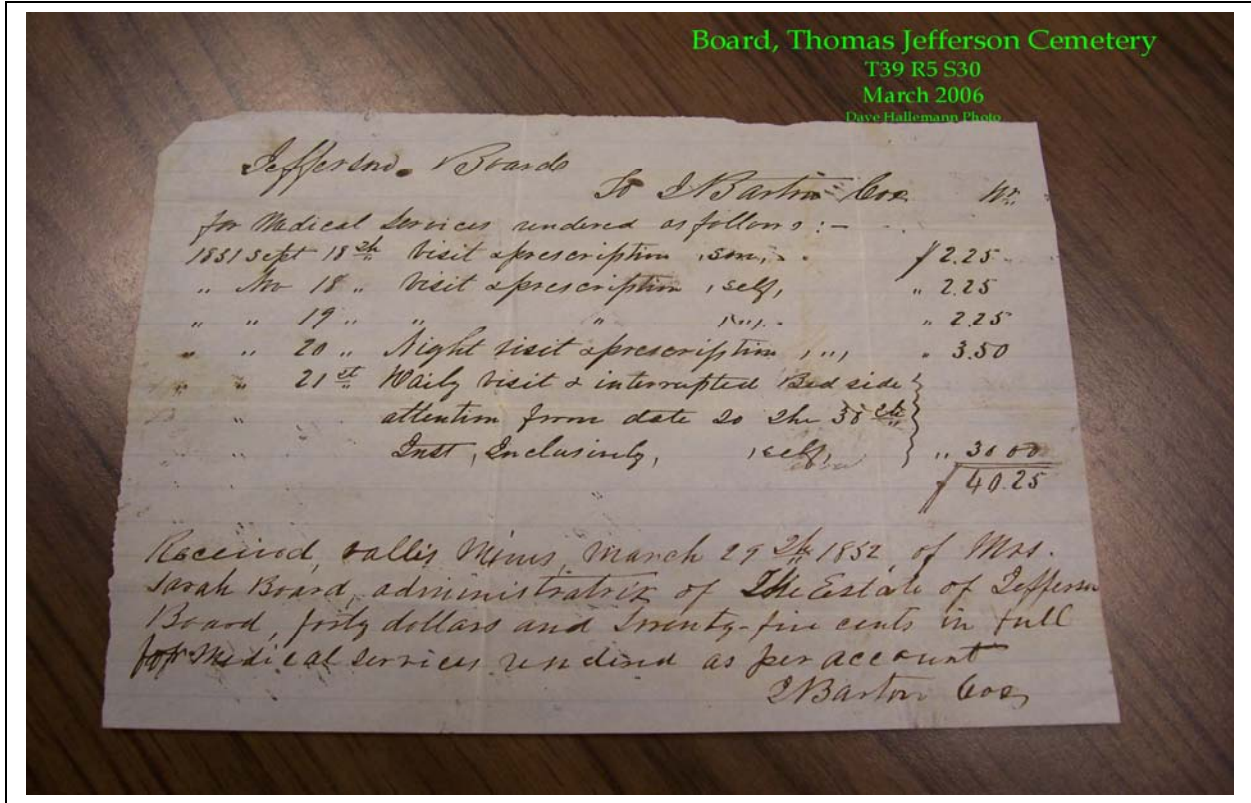 Board, Thomas Jefferson Cemetery
T39 R5 S30
March 2006
Dave Hallemann Photo
Jefferson Boards
To J Barton Cox Dr.
for Medical Services rendered as follows :-
1851 Sept 18th Visit & prescription , son, $ 2.25
" Nov 18 " Visit & prescription , self, " 2.25
" " 19 " " " , " , " 2.25
" " 20 " Night visit & prescription , " , " 3.50
" " 21st Daily visit & interrupted Bed side
" attention from date to the 30th
" Inst, Inclusively, , self, " 30 00
$ 40.25
Received, vallis Mines, March 29th 1852, of Mrs.
Sarah Board, administratrix of The Estate of Jefferson
Board, forty dollars and Twenty-five cents in full
for Medical services rendered as per account
J Barton Cox